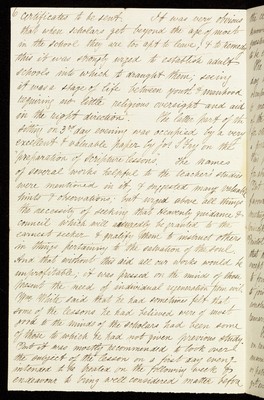 certificates to be sent. It was very obvious
that when scholars get beyond the age of most
in the school they are too apt to leave; & to remedy
this it was strongly urged to establish adult
schools into which to draught them; seeing
it was a stage of life between youth & manhood
requiring not little religious oversight and aid
in the right direction. The latter part of the
sitting on 3rd day evening was occupied by a very
excellent & valuable paper by Jos. S. Fry on the
preparation of Scripture lessons. The names
of several works helpful to the teachers' studies
were mentioned in it, & suggested many valuable
hints & observations; but urged above all things
the necessity of seeking that heavenly guidance &
council which will assuredly be granted to the
earnest seeker & qualify them to instruct others
in things pertaining to the salvation of the soul.
And that without this aid all our works would be
unprofitable; it was pressed on the minds of those
present the need of individual regeneration
Wm White said that he had sometimes felt that
some of the lessons he had believed were of most
good to the minds of the scholars had been some
of those to which he had not given previous study
But it was mostly recommended to look over
the subject of the lesson on a first day evening
intended to be treated on the following week &
endeavour to bring well considered matter before